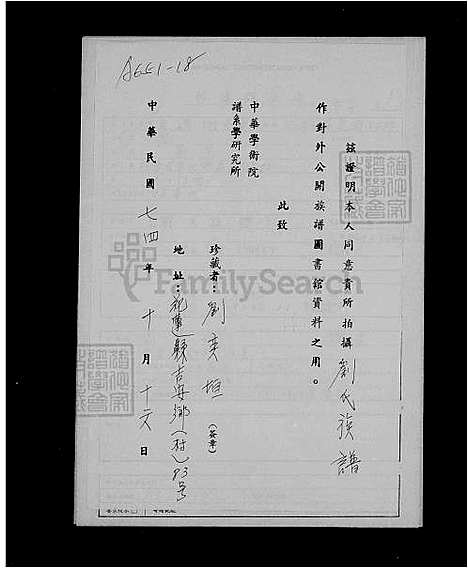 A651-18
茲證明本人同意貴所拍攝劉氏族譜
作對外公開族譜圖書館資料之用。
此致
中華學術院
譜系學研究所
珍藏者：劉奕垣（簽章）
地址：花蓮縣吉安鄉（村）83号
中華民國七四年十月十六日
FamilySearch